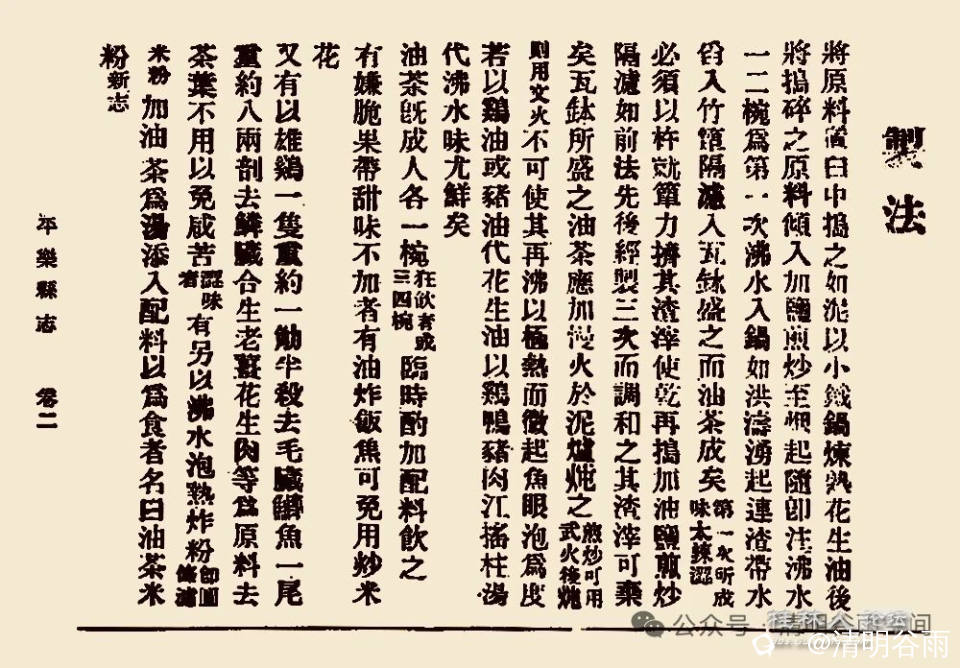 製法
將原料置臼中搗之如泥以小鐵鍋煉熟花生油後
將搗碎之原料傾入加鹽煎炒至煙起隨卽注沸水
一二椀爲第一次沸水入鍋如洪濤湧起連渣帶水
舀入竹簞隔濾入瓦缽盛之而油茶成矣第一次所成味太鍊澀
必須以杵就簞力擠其渣滓使乾再搗加油鹽煎炒
隔濾如前法先後經製三次而調和之其渣滓可棄
矣瓦缽所盛之油茶應加慢火於泥爐炖之煎炒可用武火後炖
則用文火不可使其再沸以極熱而微起魚眼泡爲度
若以鷄油或豬油代花生油以鷄鴨豬肉江搖柱湯
代沸水味尤鮮矣
油茶旣成人各一椀狂飮者或三四椀臨時酌加配料飮之
有嫌脆果帶甜味不加者有油炸飯魚可免用炒米
花
又有以雄鷄一隻重約一觔半殺去毛臟鱭魚一尾
重約八兩剖去鱗臟合生老薑花生肉等爲原料去
茶葉不用以免咸苦澀味者有另以沸水泡熟炸粉卽圓條濾
米粉加油茶爲湯添入配料以爲食者名曰油茶米
粉新志
平樂縣志 卷二
公众号·清明谷雨空间
@清明谷雨